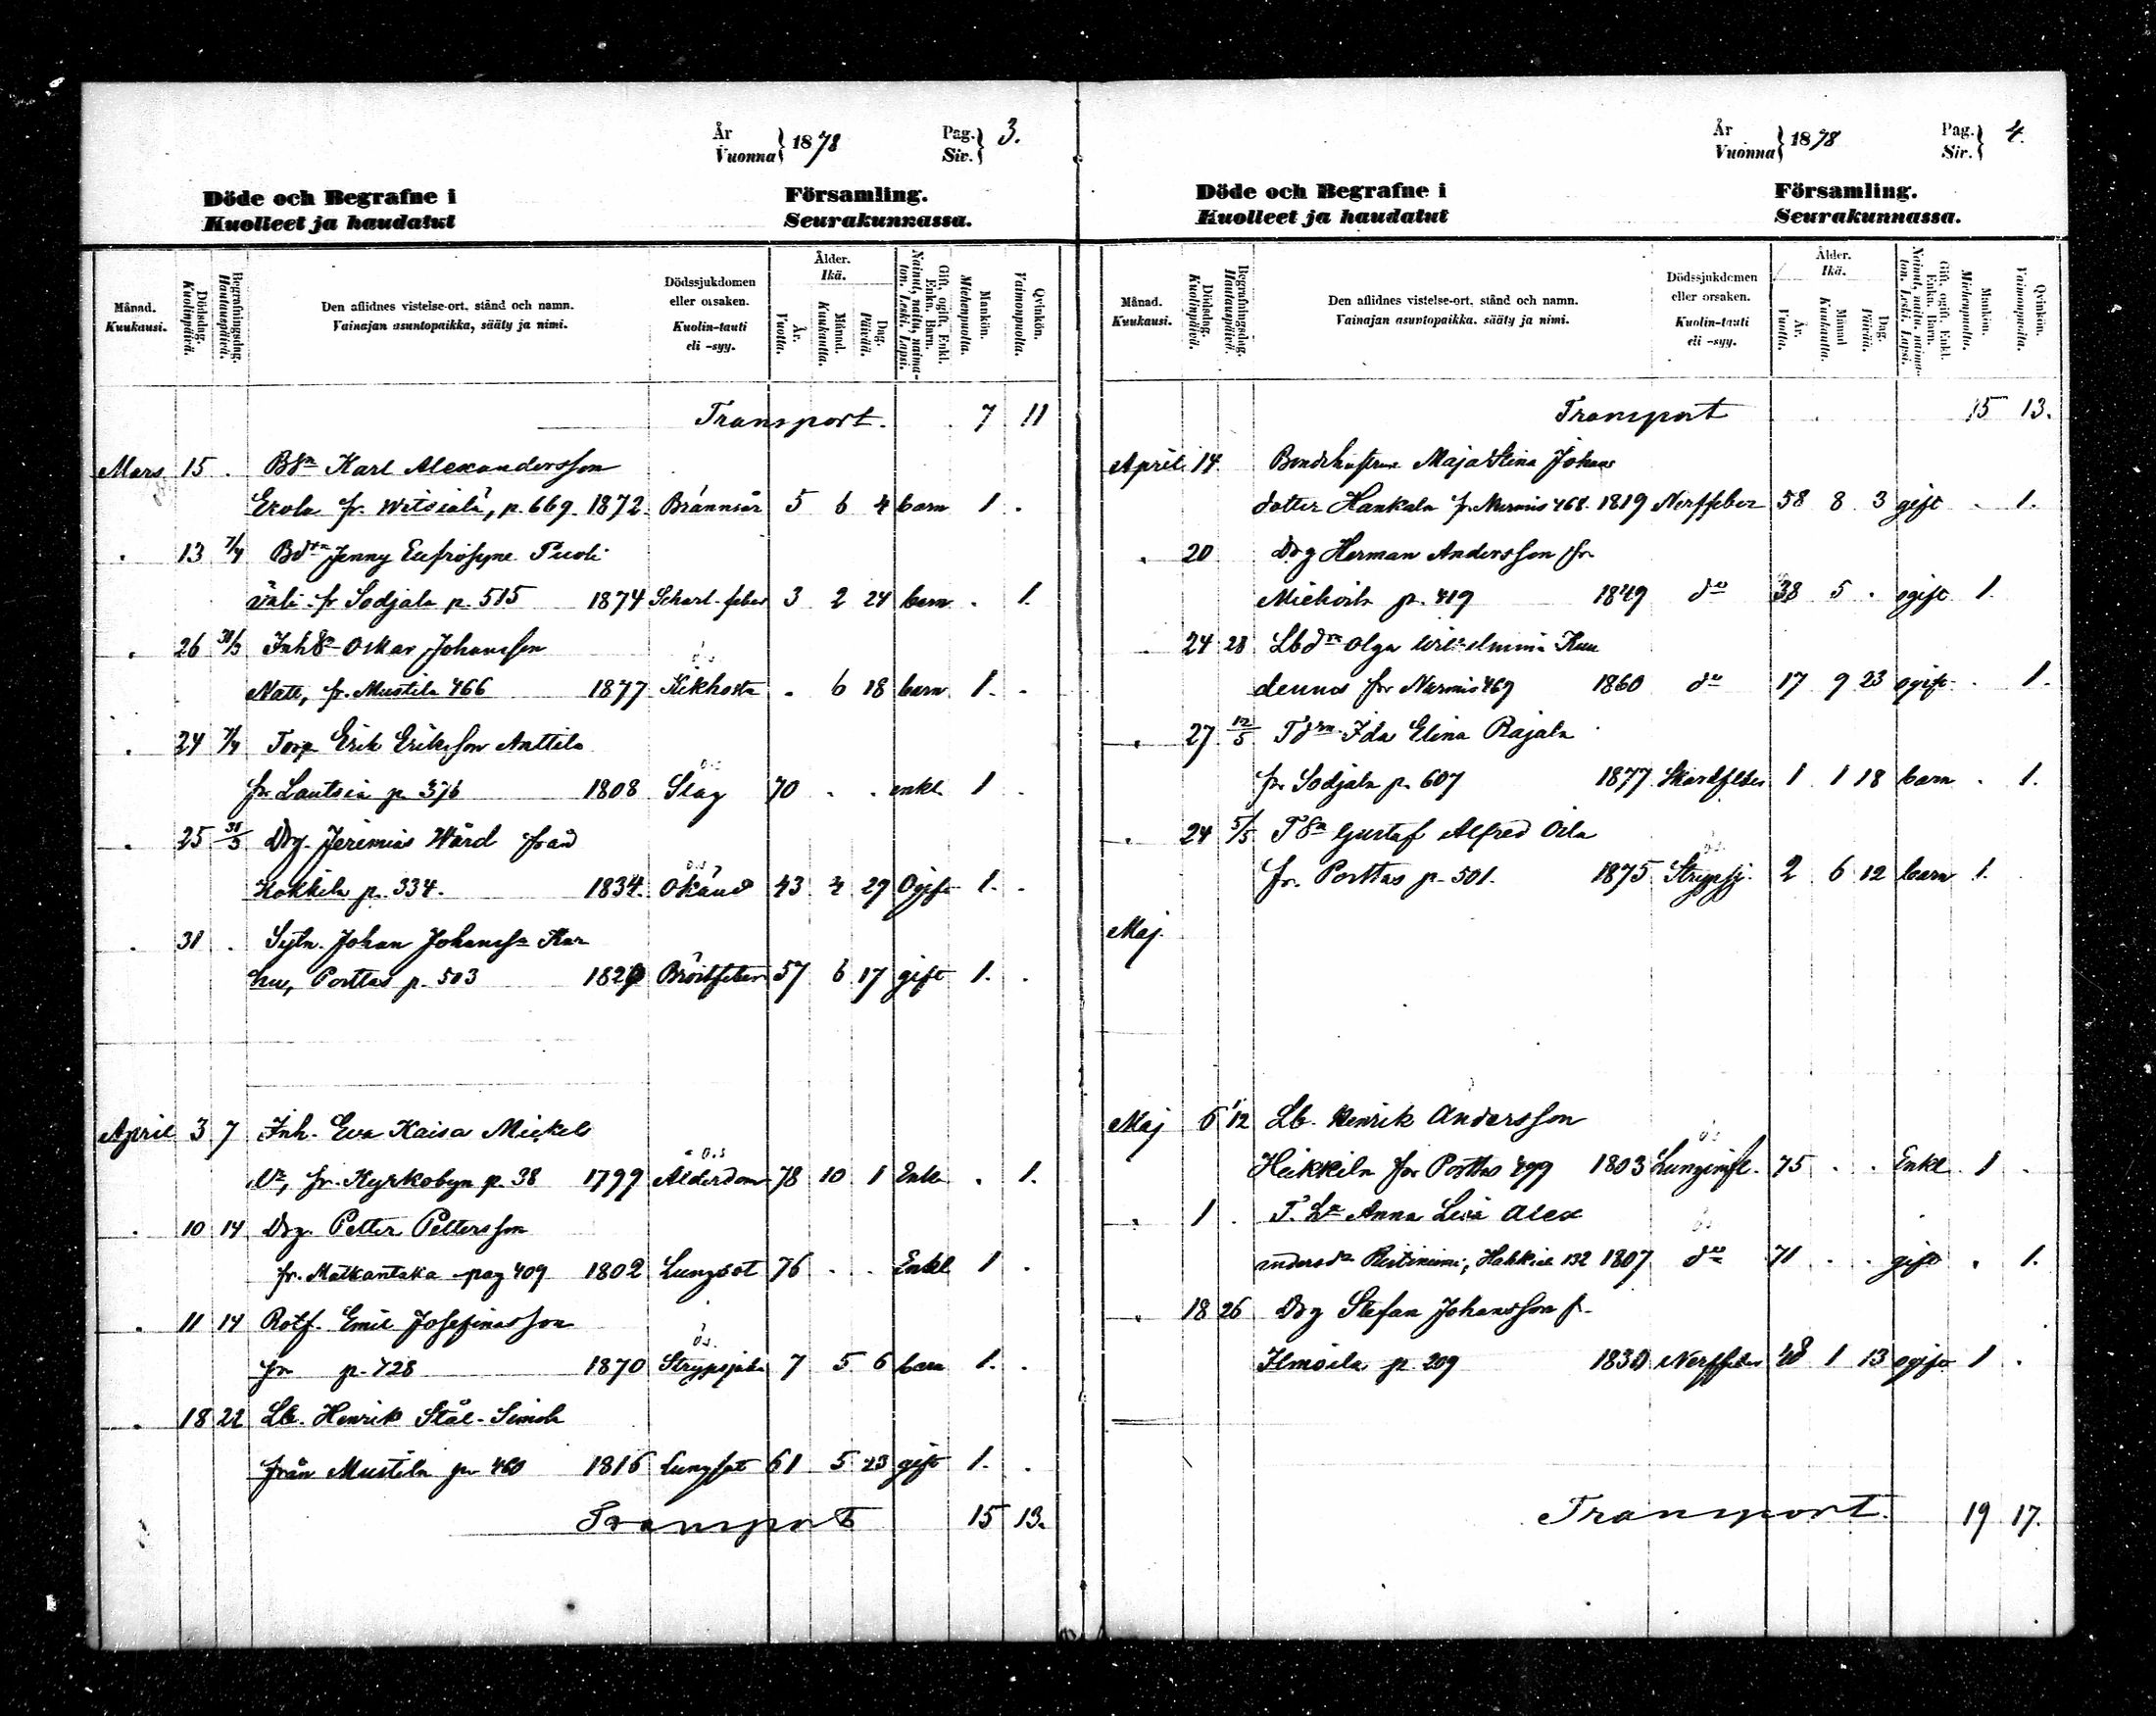 År
Vuonna } 1878 Pag. Siv. } 3.
Döde och Begrafne i Församling.
Kuolleet ja haudatut Seurakunnassa.
Månad. Kuukausi.
Dödsdag. Kuolinpäivä.
Begrafningsdag. Hautauspäivä.
Den aflidnes vistelse-ort, stånd och namn.
Vainajan asuntopaikka, sääty ja nimi.
Dödssjukdomen eller orsaken.
Kuolin-tauti eli -syy.
Ålder. Ikä.
År. Vuotta.
Månad. Kuukautta.
Dag. Päivää.
Gift, ogift, Enkl. Enka, Barn.
Nainut, naitu, naimaton, Leski, Lapsi.
Mankön. Miehenpuolta.
Qvinkön. Vaimonpuolta.
Transport. 7 11
Mars 15 . Karl Alexandersson
Erola fr. p. 669. 1872. Brännsår 5 6 4 barn 1 .
" 13 7/4 Jenny Eufrosyne Puoli
väli fr Sodjala p. 515 1874 Scharl. feber 3 2 24 barn . 1.
" 26 31/3 Oskar Johansson
fr. Mustila 466 1877 Kikhosta . 6 18 barn 1. .
" 24 7/4 Torp Erik Eriksson Anttila
fr Lautsia p. 376 1808 Slag 70 . . enkl 1 .
" 25 31/3 Drg. Jeremias Wärd från
Kokkila p. 334. 1834. Okänd 43 4 29 Ogift 1. .
" 31 . Sytn. Johan Johanss. Kar
hu, Porttas p. 503 Bröstfeber 57 6 17 gift 1. .
April 3 7 Inh. Eva Kaisa Mickels
dr, fr. Kyrkobyn p. 38 1799 Ålderdom 78 10 1 Enka . 1.
" 10 14 Drg. Petter Pettersson
fr. Matkantaka pag 409 1802 Lungsot 76 . . Enkl 1 .
" 11 14 Rotf. Emil Josefinasson
fr p. 428 1870 Strypsjuka 7 5 6 barn 1. .
" 18 22 Lb. Henrik Stål-Simola
från Mustila p. 460 1816 Lungsot 61 5 23 gift 1. .
Transport 15 13.
År
Vuonna } 1878 Pag. Siv. } 4.
Döde och Begrafne i Församling.
Kuolleet ja haudatut Seurakunnassa.
Månad. Kuukausi.
Dödsdag. Kuolinpäivä.
Begrafningsdag. Hautauspäivä.
Den aflidnes vistelse-ort, stånd och namn.
Vainajan asuntopaikka, sääty ja nimi.
Dödssjukdomen eller orsaken.
Kuolin-tauti eli -syy.
Ålder. Ikä.
År. Vuotta.
Månad Kuukautta.
Dag. Päivää.
Gift, ogift, Enkl. Enka, Barn.
Nainut, naitu, naimaton, Leski, Lapsi.
Mankön. Miehenpuolta.
Qvinkön. Vaimonpuolta.
Transport 15 13.
April 14. Bondehustrun Maja Stina Johans
dotter Hankala fr. Nurmis 468. 1819 Nerffeber 58 8 3 gift . 1.
" 20 Drg Herman Andersson fr
p. 419 1849 do 38 5 . ogift 1.
24 28 Olga Wilhelmina Kuu
dennus fr Nurmis 469 1860 do 17 9 23 ogift . 1.
" 27 12/5 Ida Elina Rajala
fr. Sodjala p. 607 1877 Skarlfeber 1 1 18 barn . 1.
" 24 5/5 Gustaf Alfred Oila
fr. Porttas p. 501. 1875 Strypsj. 2 6 12 barn 1.
Maj.
Maj 6 12 Lb. Henrik Andersson
Heikkila fr Porttas 499 1803 Lunginfl. 75 . . Enkl 1 .
" 1 . Anna Lisa Alex
andersdr 132 1807 do 71 . . gift . 1.
" 18 26 Drg Stefan Johansson fr.
Ilmoila p 209 1830 Nerffeber 48 1 13 ogift 1 .
Transport. 19 17.